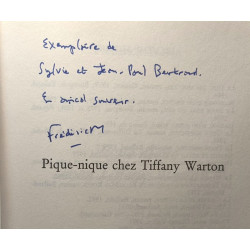 Exemplaire de
Sylvie et Jean-Paul Bertrand.
En amical souvenir.
Frédéric M
Pique-nique chez Tiffany Warton